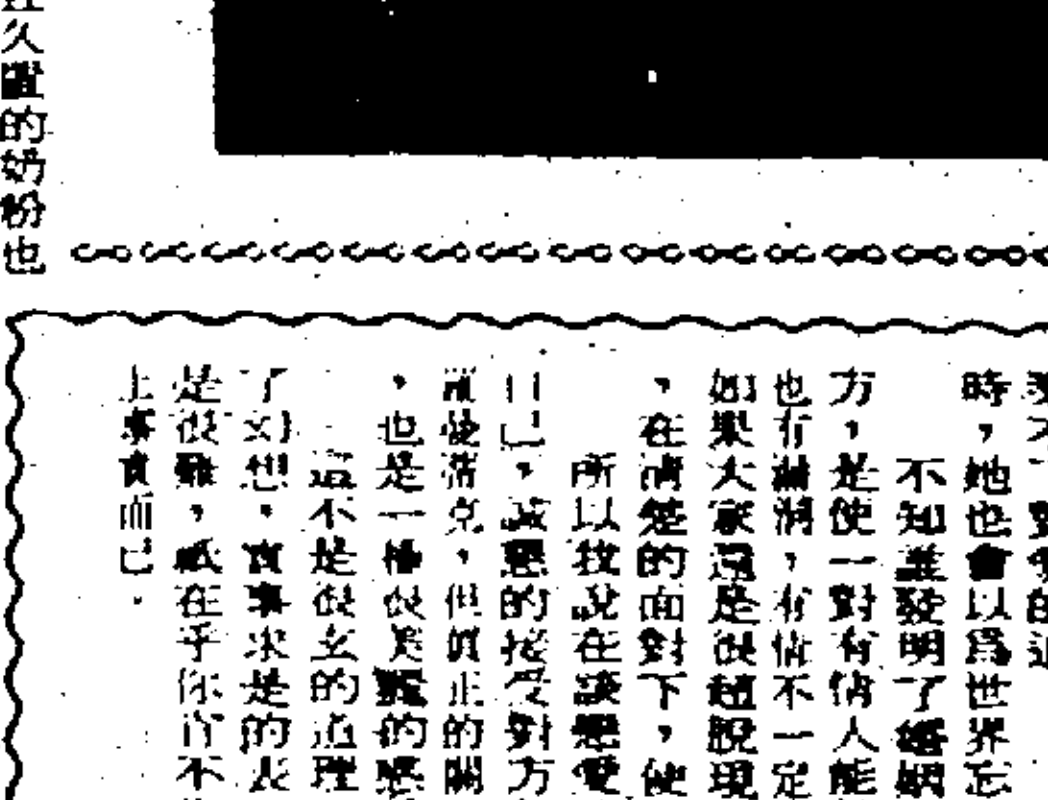 久置的奶粉也
時，她也會以爲世界忘
不知誰發明了婚姻
方，是使一對有情人能
也有漏洞，有情不一定
如果大家還是很超脫現
，在清楚的面對下，使
所以我說在談戀愛
自己，誠懇的接受對方
但真正的關
，也是一種很美麗的戀
這不是很玄的道理
了幻想，實事求是的表
是很難，祇在乎你肯不
上事實而已。